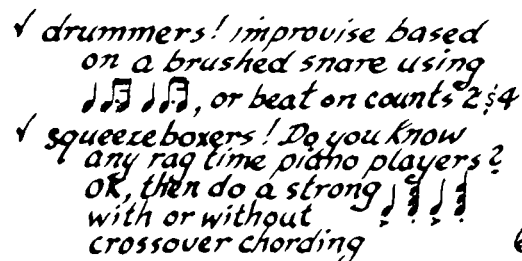 ✓ drummers! improvise based
on a brushed snare using
♩♫ ♩♫, or beat on counts 2 & 4
✓ squeezeboxers! Do you know
any rag time piano players?
OK, then do a strong
with or without
crossover chording